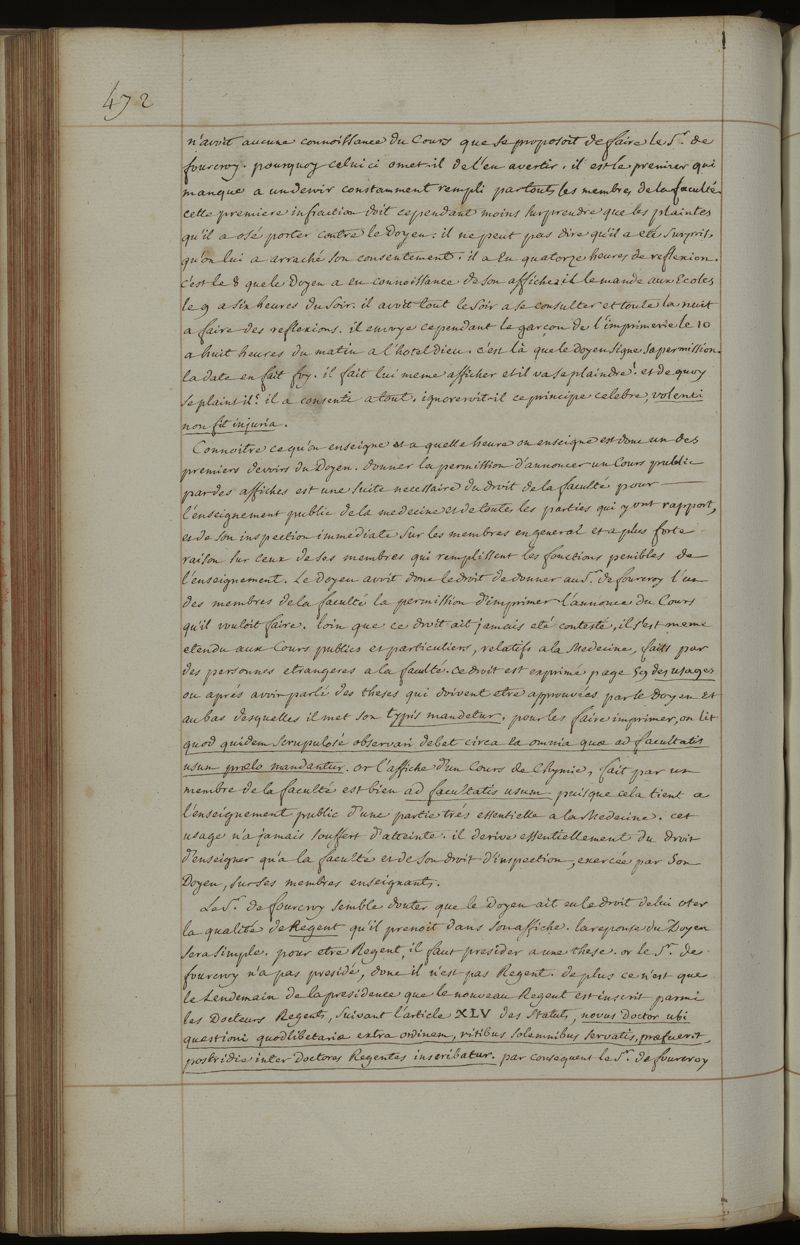 472
n'avoit aucune connoissance du Cours que se proposoit de faire le Sr. de
fourcroy. pourquoy celui ci omet-il de l'en avertir. il est le premier qui
manque a un devoir constamment rempli par touts les membres de la faculté.
cette premiere infraction doit cependant moins surprendre que les plaintes
qu'il a osé porter contre le Doyen: il ne peut pas dire qu'il a été surpris,
qu'on lui a arraché son consentement. il a Eu quatorze heures de reflexion.
c'est le 8 que le Doyen a eu connoissance de son affiche, il le mande aux Ecoles
le 9 a six heures du Soir. il avoit tout le Soir a se consulter et toute la nuit
a faire des reflexions. il envoye cependant le garçon de l'imprimerie le 10
a huit heures du matin a l'hotel dieu. c'est là que le doyen signe sa permission.
la date en fait foy. il fait lui meme afficher et il va se plaindre! et de quoy
se plaint il? il a consenti a tout. ignoreroit-il ce principe celebre, volenti
non fit injuria.
Connoitre ce qu'on enseigne et a quelle heure on enseigne est donc un des
premiers devoirs du Doyen. donner la permission d'annoncer un Cours public
par des affiches est une suite necessaire du droit de la faculté pour
l'enseignement public de la medecine et de toutes les parties qui y ont rapport,
et de son inspection immediate sur les membres en general et a plus forte
raison sur ceux de ses membres qui remplissent les fonctions penibles de
l'enseignement. Le Doyen avoit donc le droit de donner au Sr. de fourcroy l'un
des membres de la faculté la permission d'imprimer l'annonce du Cours
qu'il vouloit faire. loin que ce droit ait jamais eté contesté, il s'est meme
etendu aux Cours publics et particuliers, relatifs a la Medecine, faits par
des personnes etrangeres a la faculté. Ce droit est exprimé page 59 des usages
ou aprés avoir parlé des theses qui doivent etre approuvées par le Doyen et
au bas desquelles il met son typis mandetur, pour les faire imprimer, on lit
quod quidem scrupulosé observari debet circa ea omnia quæ ad facultatis
usum prælo mandantur. or l'affiche d'un Cours de Chymie, fait par un
membre de la faculté est bien ad facultatis usum puisque cela tient a
l'enseignement public d'une partie trés essentielle a la Medecine. cet
usage n'a jamais souffert d'atteinte. il derive essentiellement du droit
d'enseigner qu'a la faculté et de son droit d'inspection, exercée par son
Doyen, sur ses membres enseignants.
Le Sr. de fourcroy semble douter que le Doyen ait eu le droit de lui oter
la qualité de Régent qu'il prenoit dans son affiche. la reponse du Doyen
sera simple. pour etre Regent, il faut presider a une these. or le Sr. de
fourcroy n'a pas presidé, donc il n'est pas Regent. de plus ce n'est que
le Lendemain de la presidence que le nouveau Regent est inscrit parmi
les Docteurs Regents, suivant l'article XLV des Statuts, novus Doctor ubi
questioni quodlibetariæ extra ordinem, ritibus solemnibus servatis, præfuerit,
postridie inter Doctores Regentes inscribatur. par consequent le Sr. de fourcroy